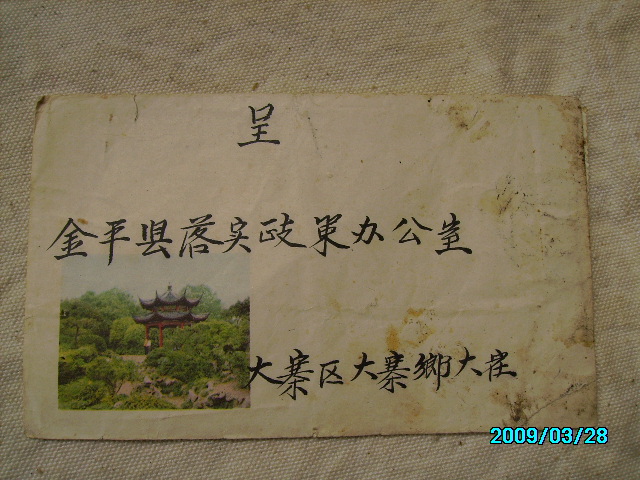 呈
金平县落实政策办公室
大寨区大寨鄉大庄
2009/03/28